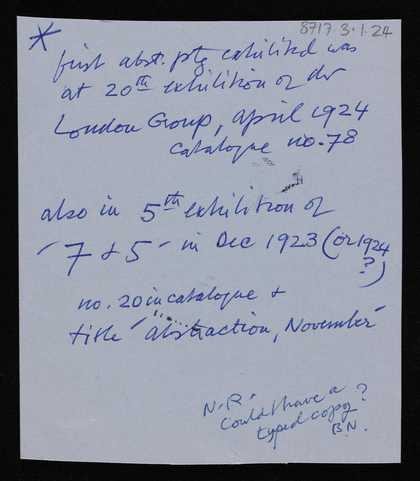 8717.3.1.24
* first abst. ptg exhibited was
at 20th exhibition of the
London Group, April 1924
catalogue no. 78
also in 5th exhibition of
'7 & 5' in Dec 1923 (or 1924
?)
no. 20 in catalogue &
title 'abstraction, November'
N.R.
Could I have a
typed copy?
B.N.